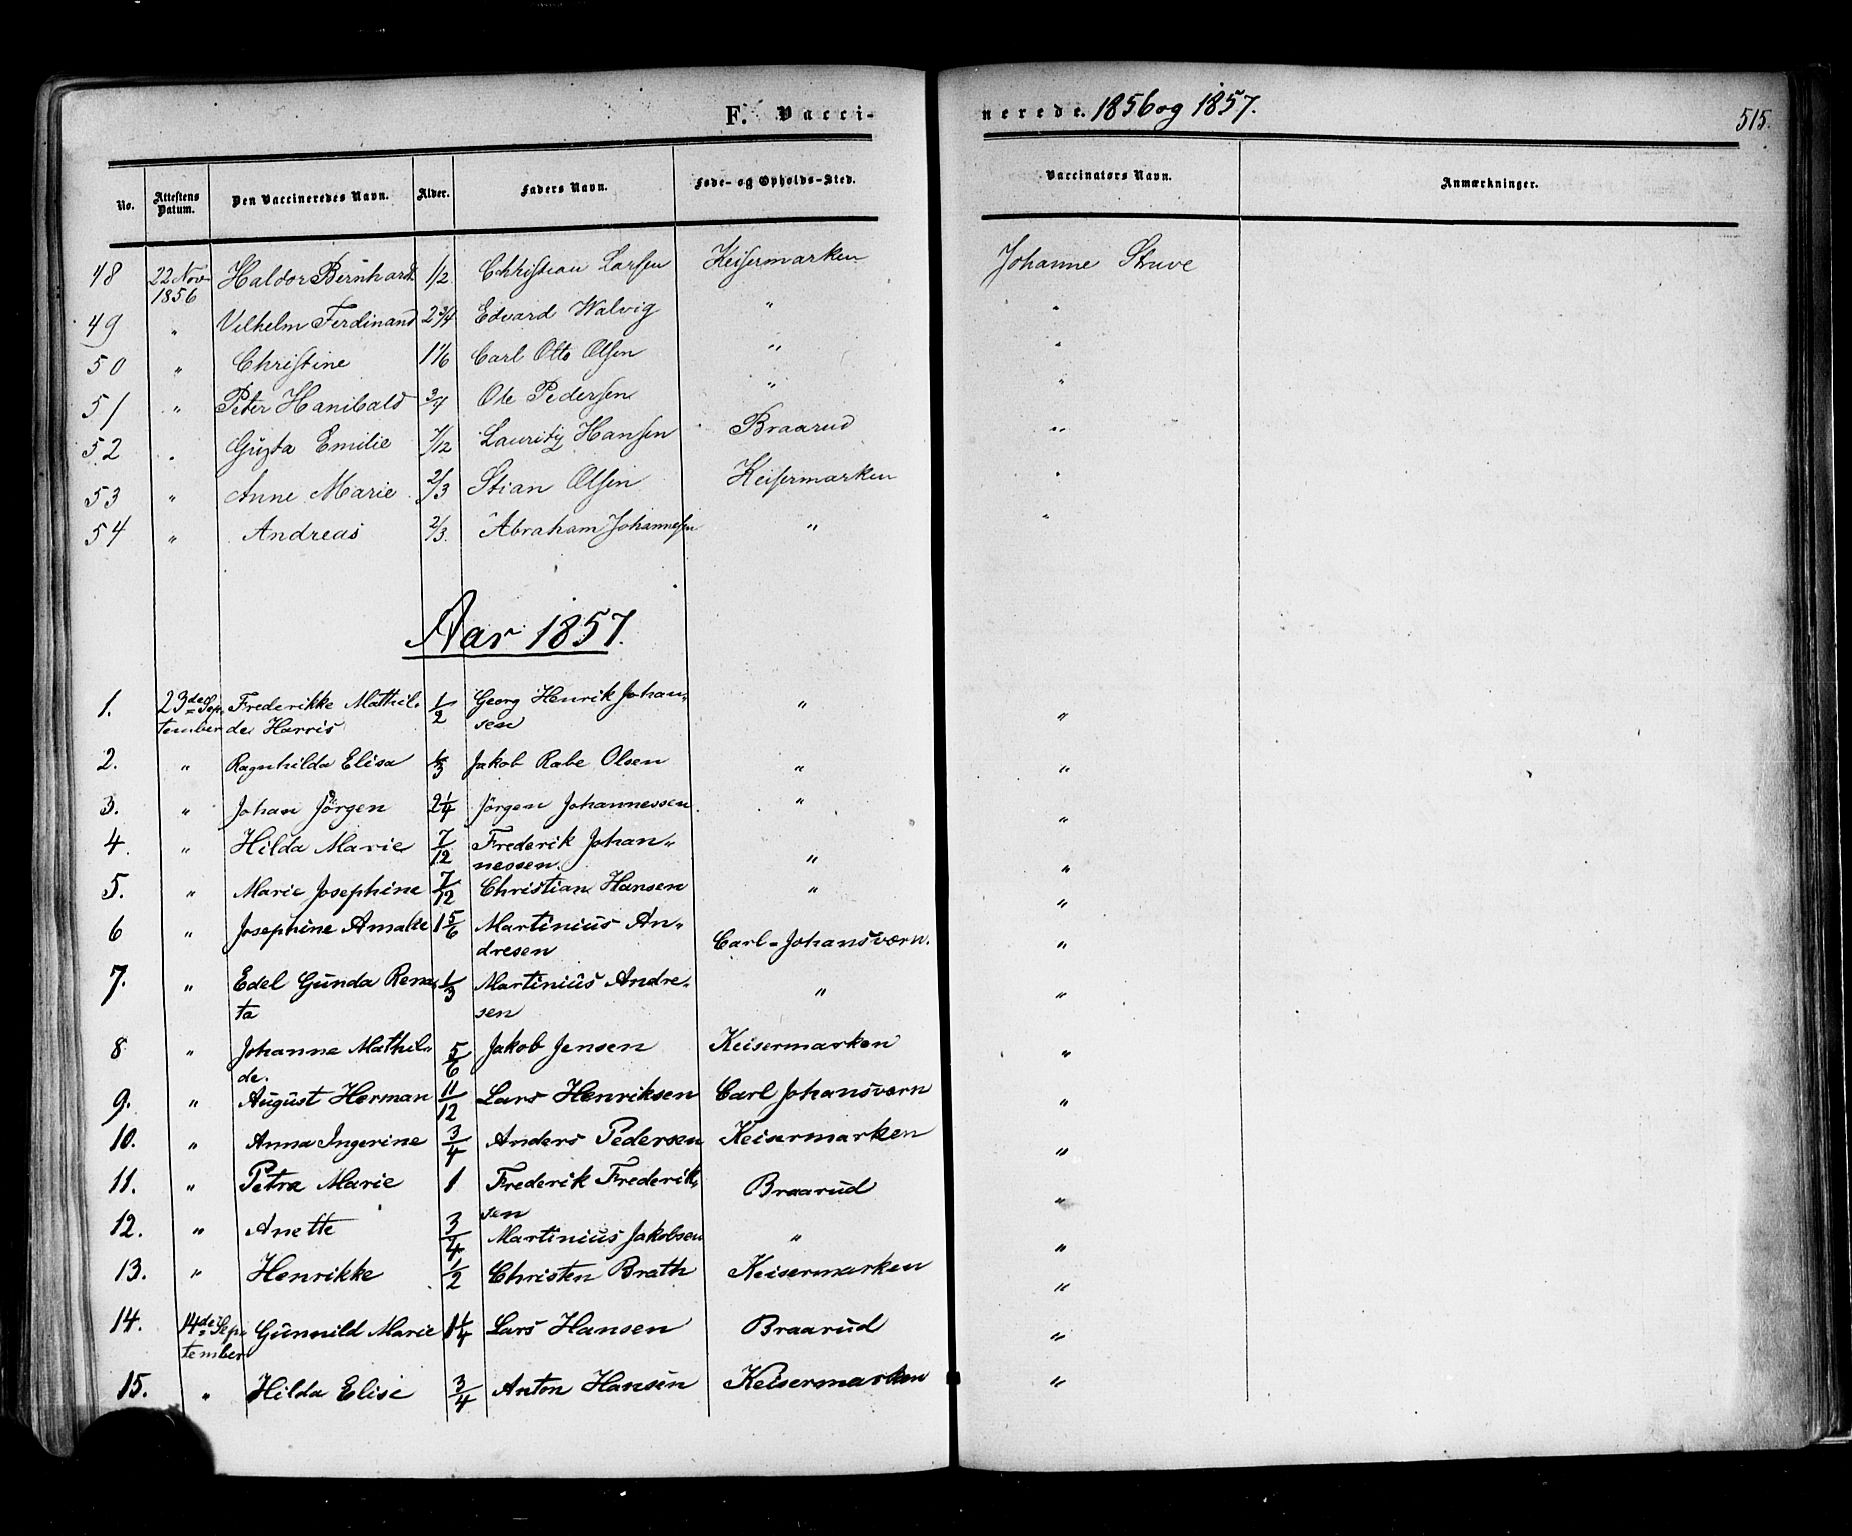 F. Vacci-
nerede. 1856 og 1857.
515.
No. Attestens Datum. Den Vaccineredes Navn. Alder. Faders Navn. Føde- og Opholds-Sted. Vaccinators Navn. Anmærkninger.
48 22 Nov 1856 Haldor Bernhard 1/2 Christian Larsen Keisermarken Johanne Struve
49 " Vilhelm Ferdinand 2 3/4 Edvard Walvig " "
50 " Christine 1 1/6 Carl Otto Olsen " "
51 " Peter Hanibald 3/4 Ole Pedersen " "
52 " Emilie 7/12 Lauritz Hansen Braarud "
53 " Anne Marie 2/3 Stian Olsen Keisermarken "
54 " Andreas 2/3 Abraham Johannesen " "
Aar 1857.
1. 23de Sep- Frederikke Mathil- 1/2 Georg Henrik Johan- " "
tember de Harris sen
2. " Ragnhilda Elisa 1/3 Jakob Rabe Olsen " "
3. " Johan Jörgen 2 1/4 Jörgen Johannessen " "
4. " Hilda Marie 7/12 Frederik Johan- " "
nessen.
5. " Marie Josephine 7/12 Christian Hansen " "
6 " Josephine Amalie 1 5/6 Martinius An- Carl-Johansværn. "
dresen
7. " Edel Gunda Rena- 1/3 Martinius Andre- " "
ta sen
8 " Johanne Mathil- 5/6 Jakob Jensen Keisermarken "
de.
9. " August Herman 11/12 Lars Henriksen Carl Johansværn "
10. " Anna Ingerine 3/4 Anders Pedersen Keisermarken "
11. " Petra Marie 1 Frederik Frederik- Braarud "
sen
12. " Anette 3/4 Martinius Jakobsen " "
13. " Henrikke 1/2 Christen Brath Keisermarken "
14. 14de Sep- Gunnild Marie 1 1/4 Lars Hansen Braarud "
tember
15. " Hilda Elise 3/4 Anton Hansen Keisermarken "